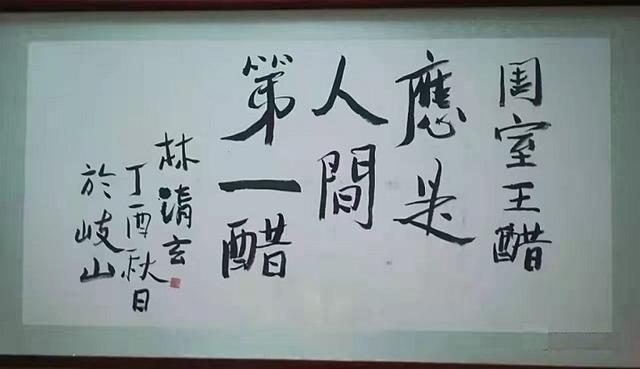 周室王醋
應是
人間
第一醋
林清玄
丁酉秋日
於岐山